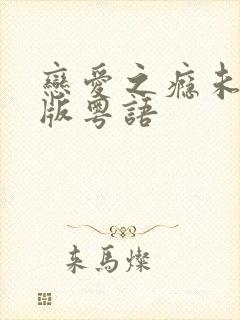 戀愛之癮未
版粵語
來馬燦